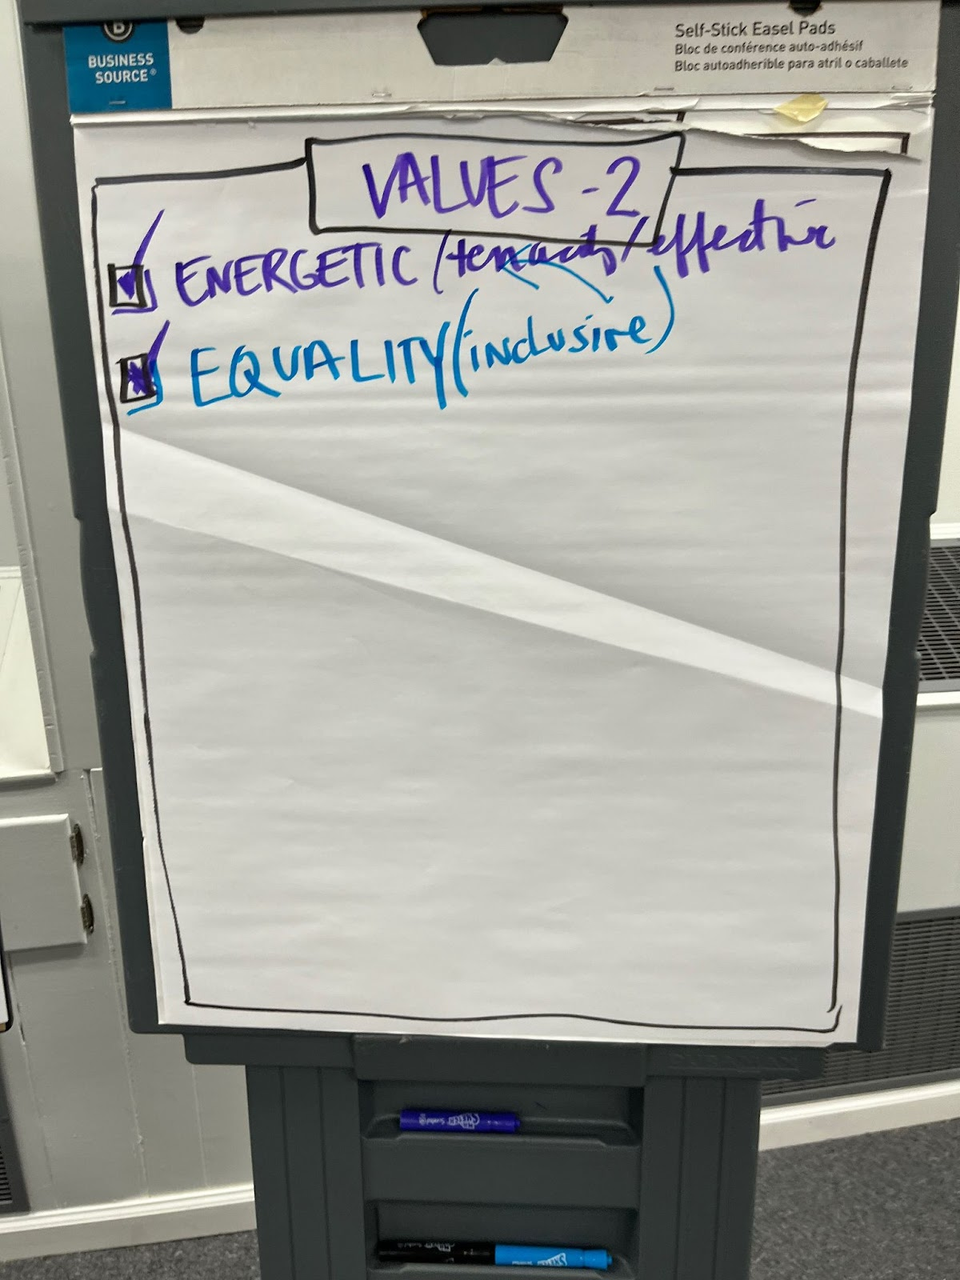 BUSINESS
SOURCE®
Self-Stick Easel Pads
Bloc de conférence auto-adhésif
Bloc autoadherible para atril o caballete
VALUES - 2
ENERGETIC / / effective
EQUALITY (inclusive)